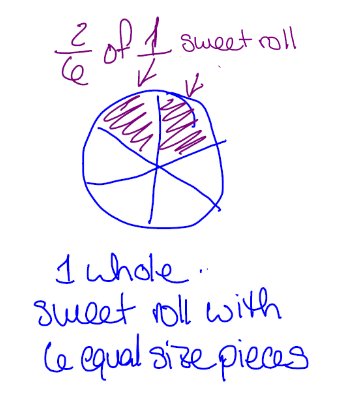 2/6 of 1 sweet roll
1 whole..
sweet roll with
6 equal size pieces